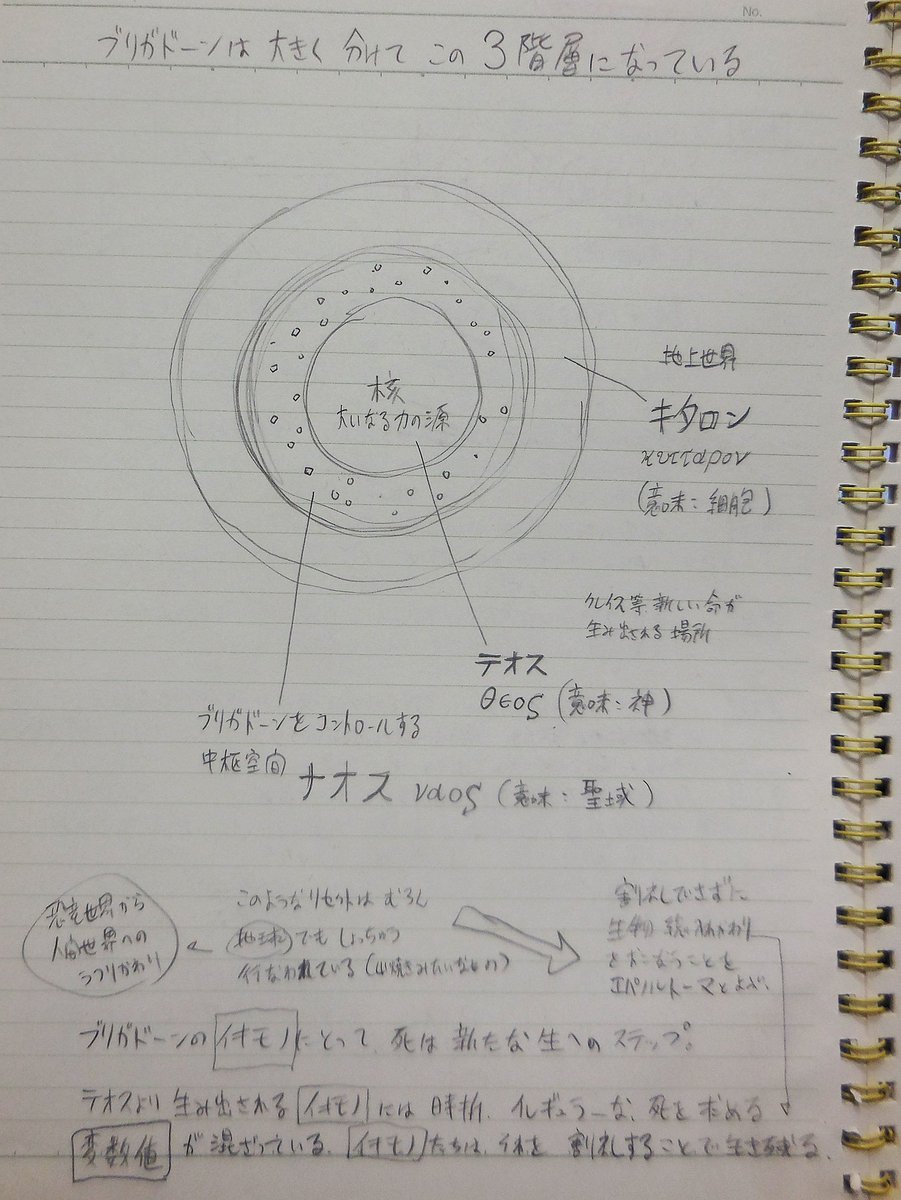 No.
ブリガドーンは大きく分けてこの3階層になっている
核
大いなる力の源
地上世界
キタロン
κυτταρον
(意味:細胞)
クレイス等、新しい命が
生み出される場所
テオス
θεος (意味:神)
ブリガドーンをコントロールする
中枢空間
ナオス ναος (意味:聖域)
恐竜世界から
人間世界への
うつりかわり
このようなリセットは むろん
地球でも しょっちゅう
行なわれている(山焼きみたいなもの)
割礼しできずに
生物の
とおこなうことを
エパルトーマとよぶ、
ブリガドーンのイキモノにとって、死は新たな生へのステップ。
テオスより生み出されるイキモノには時折、イレギュラーな、死を求める
変数値が混ざっている、イキモノたちは、それを割礼することで生き延びる、